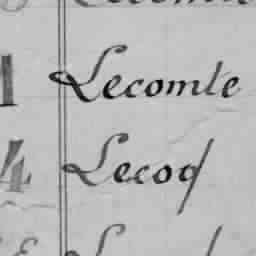 1 Lecomte
4 Lecoq